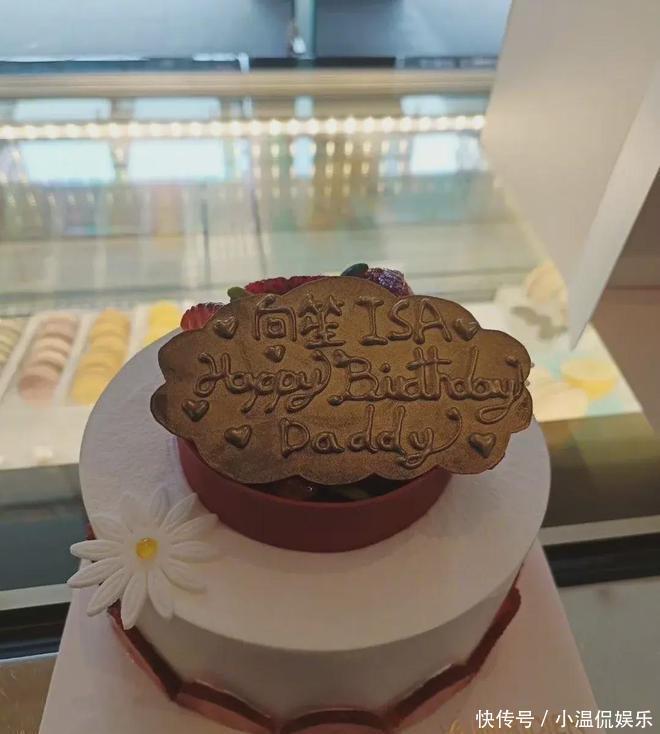 向笙 ISA
Happy Birthday
Daddy
快传号 / 小温侃娱乐